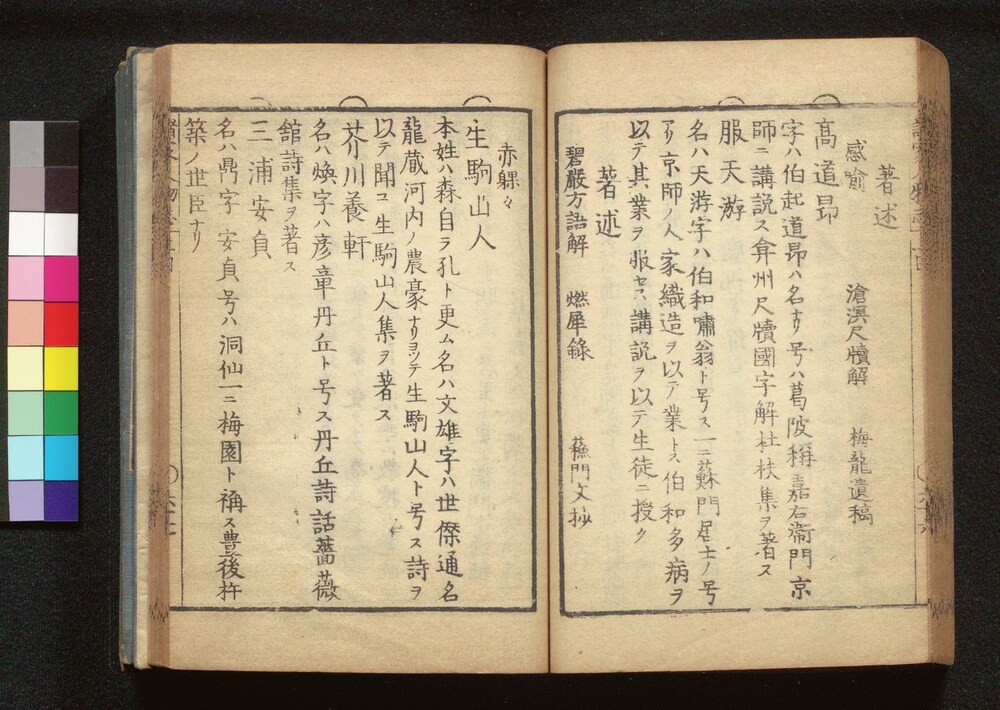 著述
感喻 滄溟尺牘解 梅龍遺稿
高道昂
字ハ伯起道昂ハ名ナリ号ハ葛陂稱嘉右衞門京
師ニ講説ス弇州尺牘國字解杜袂集ヲ著ス
服天游
名ハ天游字ハ伯和嘯翁ト号ス一ニ蘇門居士ノ号
アリ京師ノ人家織造ヲ以テ業トス伯和多病ヲ
以テ其業ヲ服セス講説ヲ以テ生徒ニ授ク
著述
碧嚴方語解 燃犀錄 蘓門文抄
赤躶々
生駒山人
本姓ハ森自ラ孔ト更ム名ハ文雄字ハ世傑通名
龍蔵河内ノ農豪ナリヨツテ生駒山人ト号ス詩ヲ
以テ聞ユ生駒山人集ヲ著ス
芥川養軒
名ハ煥字ハ彦章丹丘ト号ス丹丘詩話薔薇
舘詩集ヲ著ス
三浦安貞
名ハ鼎字ハ安貞号ハ洞仙一ニ梅園ト稱ス豊後杵
築ノ世臣ナリ